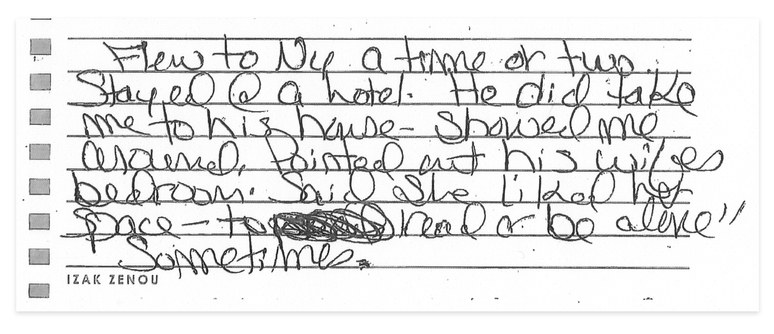 Flew to Ny a time or two.
Stayed @ a hotel. He did take
me to his house – showed me
around. Pointed out his wifes
bedroom. Said she liked her
space – to read or be alone"
Sometimes.
IZAK ZENOU